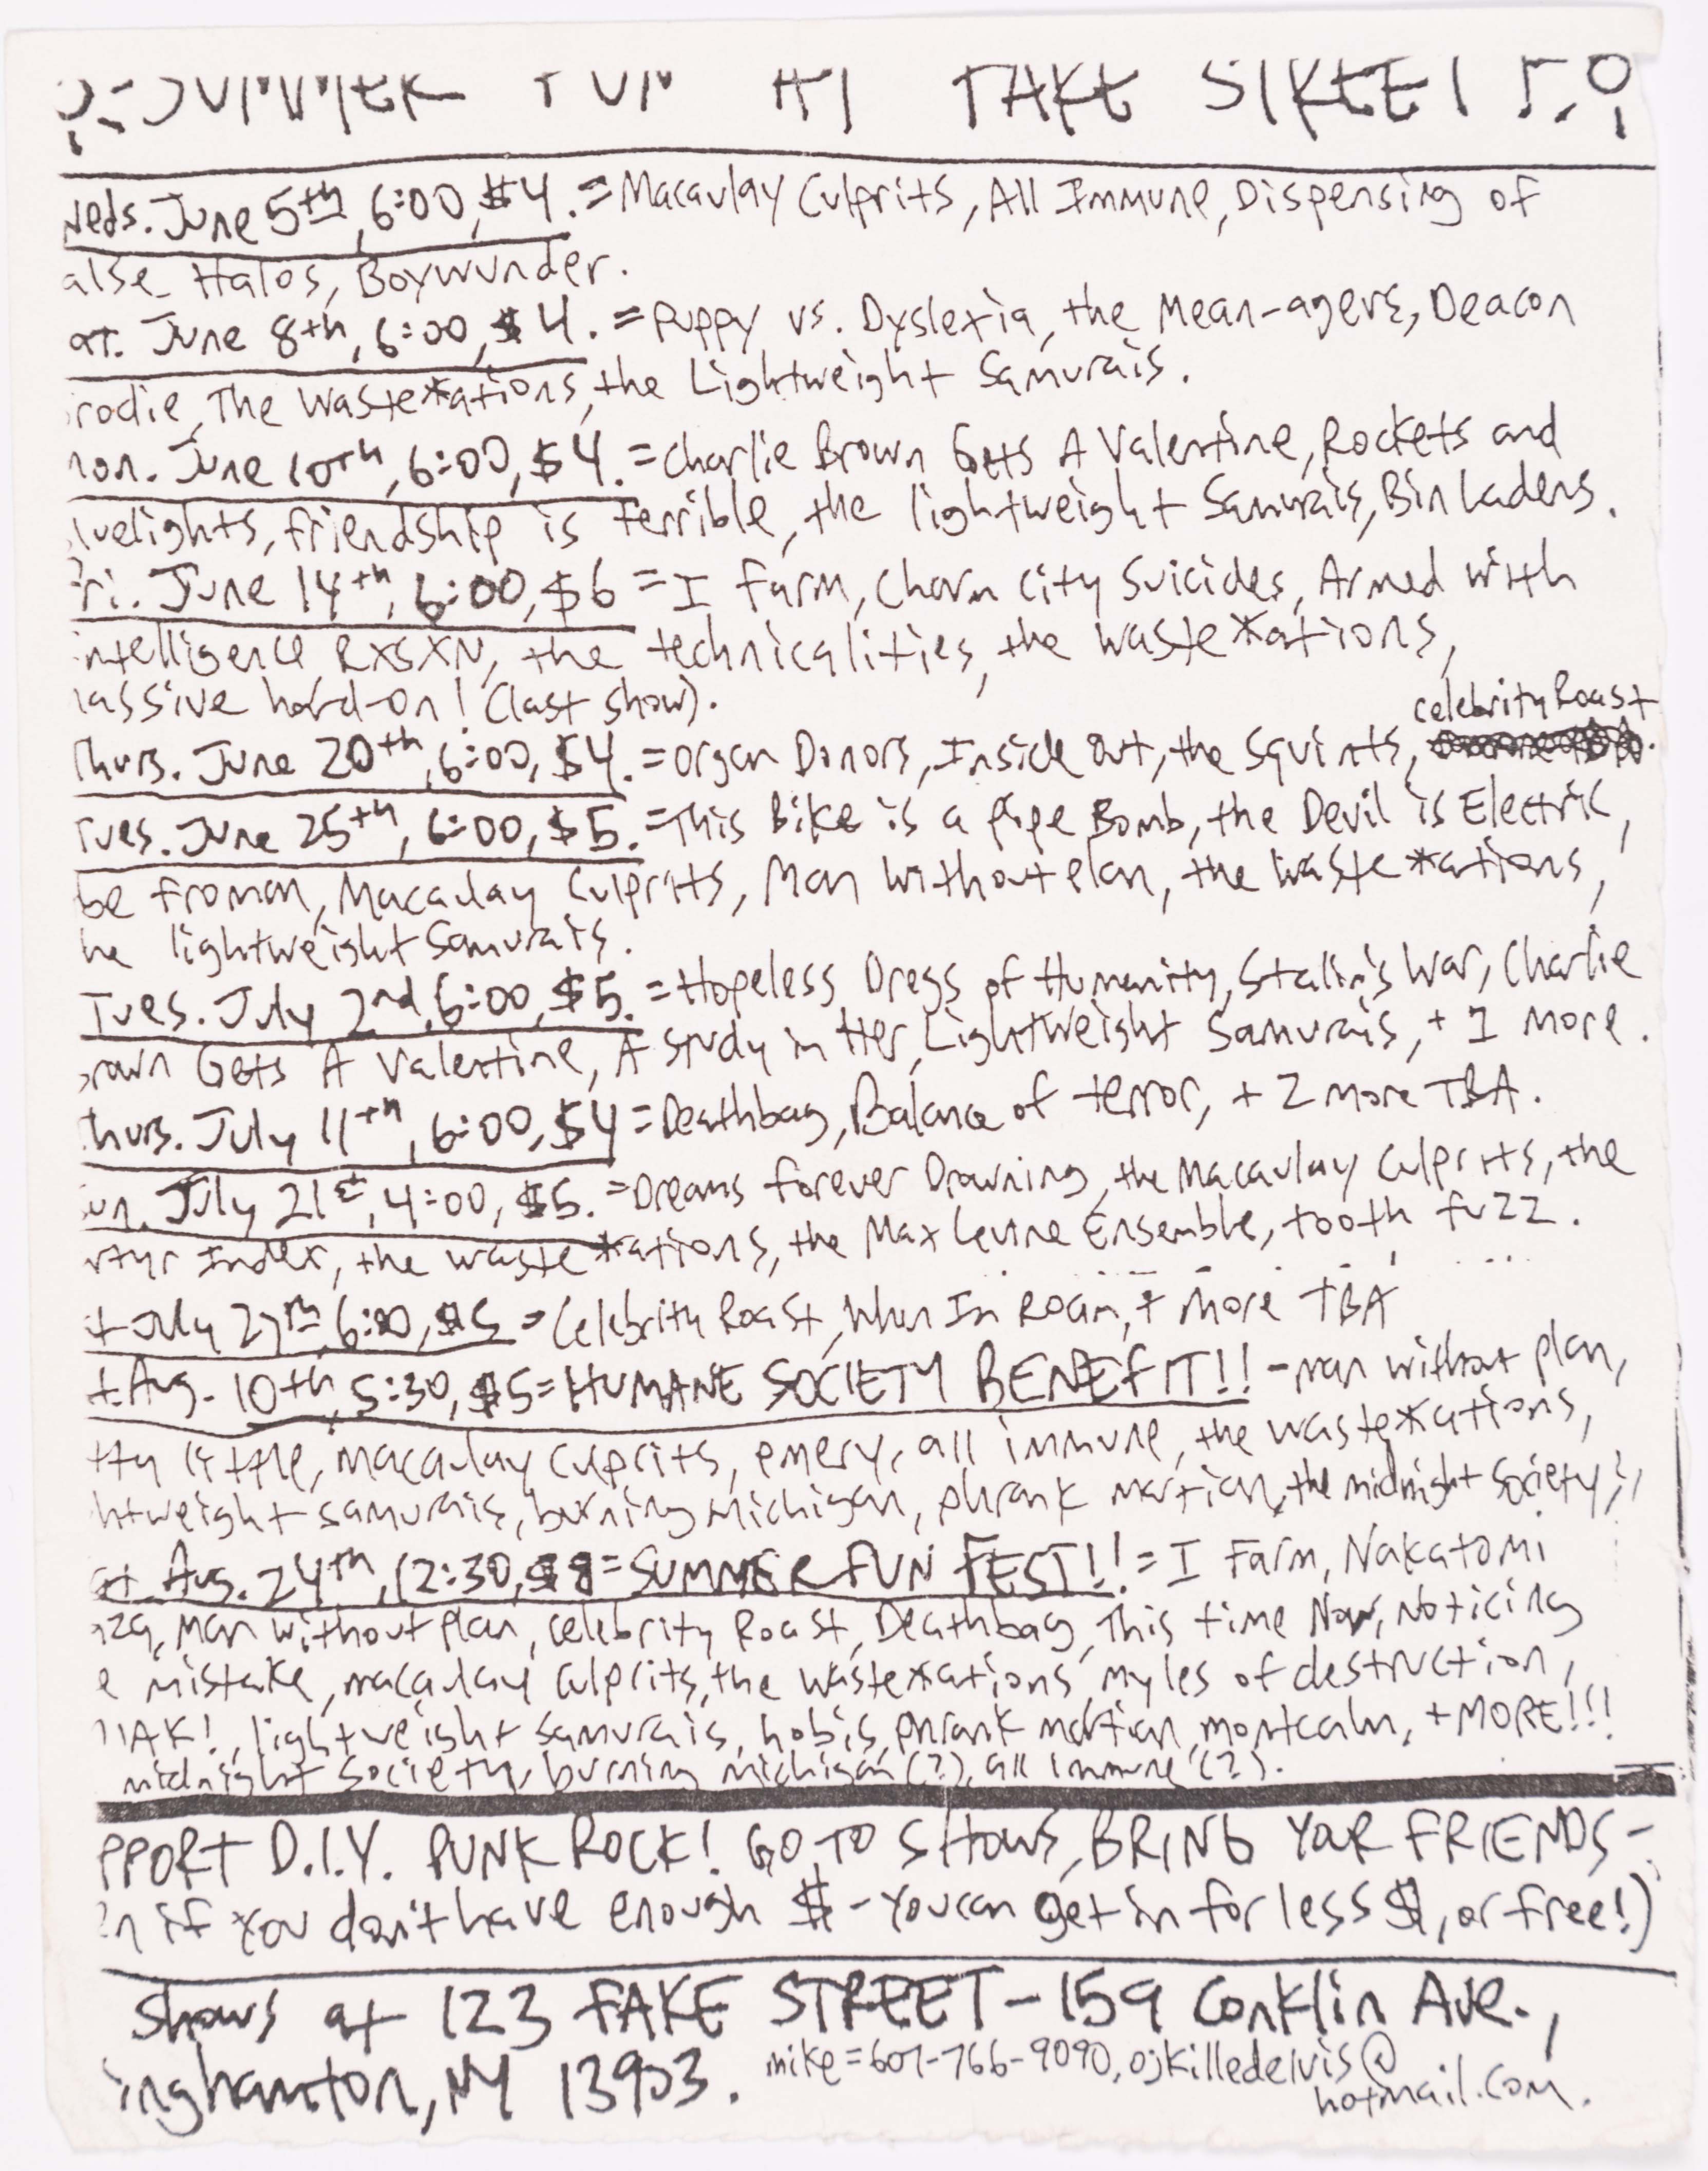 SUMMER FUN AT FAKE STREET!!
Weds. June 5th, 6:00, $4. = Macaulay Culprits, All Immune, Dispensing of
alse Halos, Boywunder.
at. June 8th, 6:00, $4. = Puppy vs. Dyslexia, the Mean-agers, Deacon
rodie, The Waste*ations, the Lightweight Samurais.
mon. June 10th, 6:00, $4. = Charlie Brown Gets A Valentine, Rockets and
luelights, friendship is terrible, the lightweight Samurais, Bin Ladens.
Fri. June 14th, 6:00, $6 = I Farm, Charm City Suicides, Armed with
intelligence RXSXN, the technicalities, the waste*ations,
massive hard-on! (last show).
celebrity Roast
Thurs. June 20th, 6:00, $4. = Organ Donors, Inside Out, the Squints,
Tues. June 25th, 6:00, $5. = This Bike is a Pipe Bomb, the Devil is Electric,
be froman, Macaulay Culprits, Man Without Plan, the Waste*ations,
he lightweight Samurais.
Tues. July 2nd, 6:00, $5. = Hopeless Dregs of Humanity, Stalin's War, Charlie
rown Gets A Valentine, A Study in Her, Lightweight Samurais, + 1 more.
hurs. July 11th, 6:00, $4 = Deathbag, Balance of terror, + 2 more TBA.
un. July 21st, 4:00, $5. = Dreams Forever Drowning, the Macaulay Culprits, the
rtyr Index, the waste*ations, the Max Levine Ensemble, tooth fuzz.
t July 27th, 6:00, $5 = Celebrity Roast, When In Roam, + more TBA
t. Aug. 10th, 5:30, $5 = HUMANE SOCIETY BENEFIT!! - man without plan,
tty little, macaulay culprits, emery, all immune, the waste*ations,
htweight samurais, burning michigan, phrank martian, the midnight society,
at. Aug. 24th, 12:30, $8 = SUMMER FUN FEST!! = I Farm, Nakatomi
aza, Man without plan, celebrity Roast, Deathbag, This time Now, Noticing
e mistake, macaulay culprits, the waste*ations, myles of destruction,
AK!, lightweight samurais, hobis, phrank martian, montcalm, + MORE!!!
midnight society, burning michigan (?), all immune (?).
PPORT D.I.Y. PUNK ROCK! GO TO SHOWS, BRING YOUR FRIENDS -
n if you don't have enough $ - you can get in for less $, or free!)
Shows at 123 FAKE STREET - 159 Conklin Ave.,
inghamton, NY 13903. mike = 607-766-9090, ojkilledelvis@
hotmail.com.